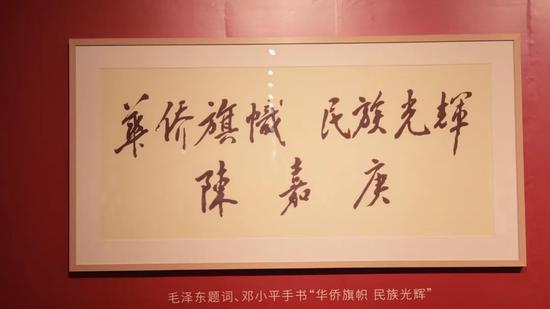 華侨旗幟 民族光輝
陳嘉庚
毛泽东题词、邓小平手书“华侨旗帜 民族光辉”